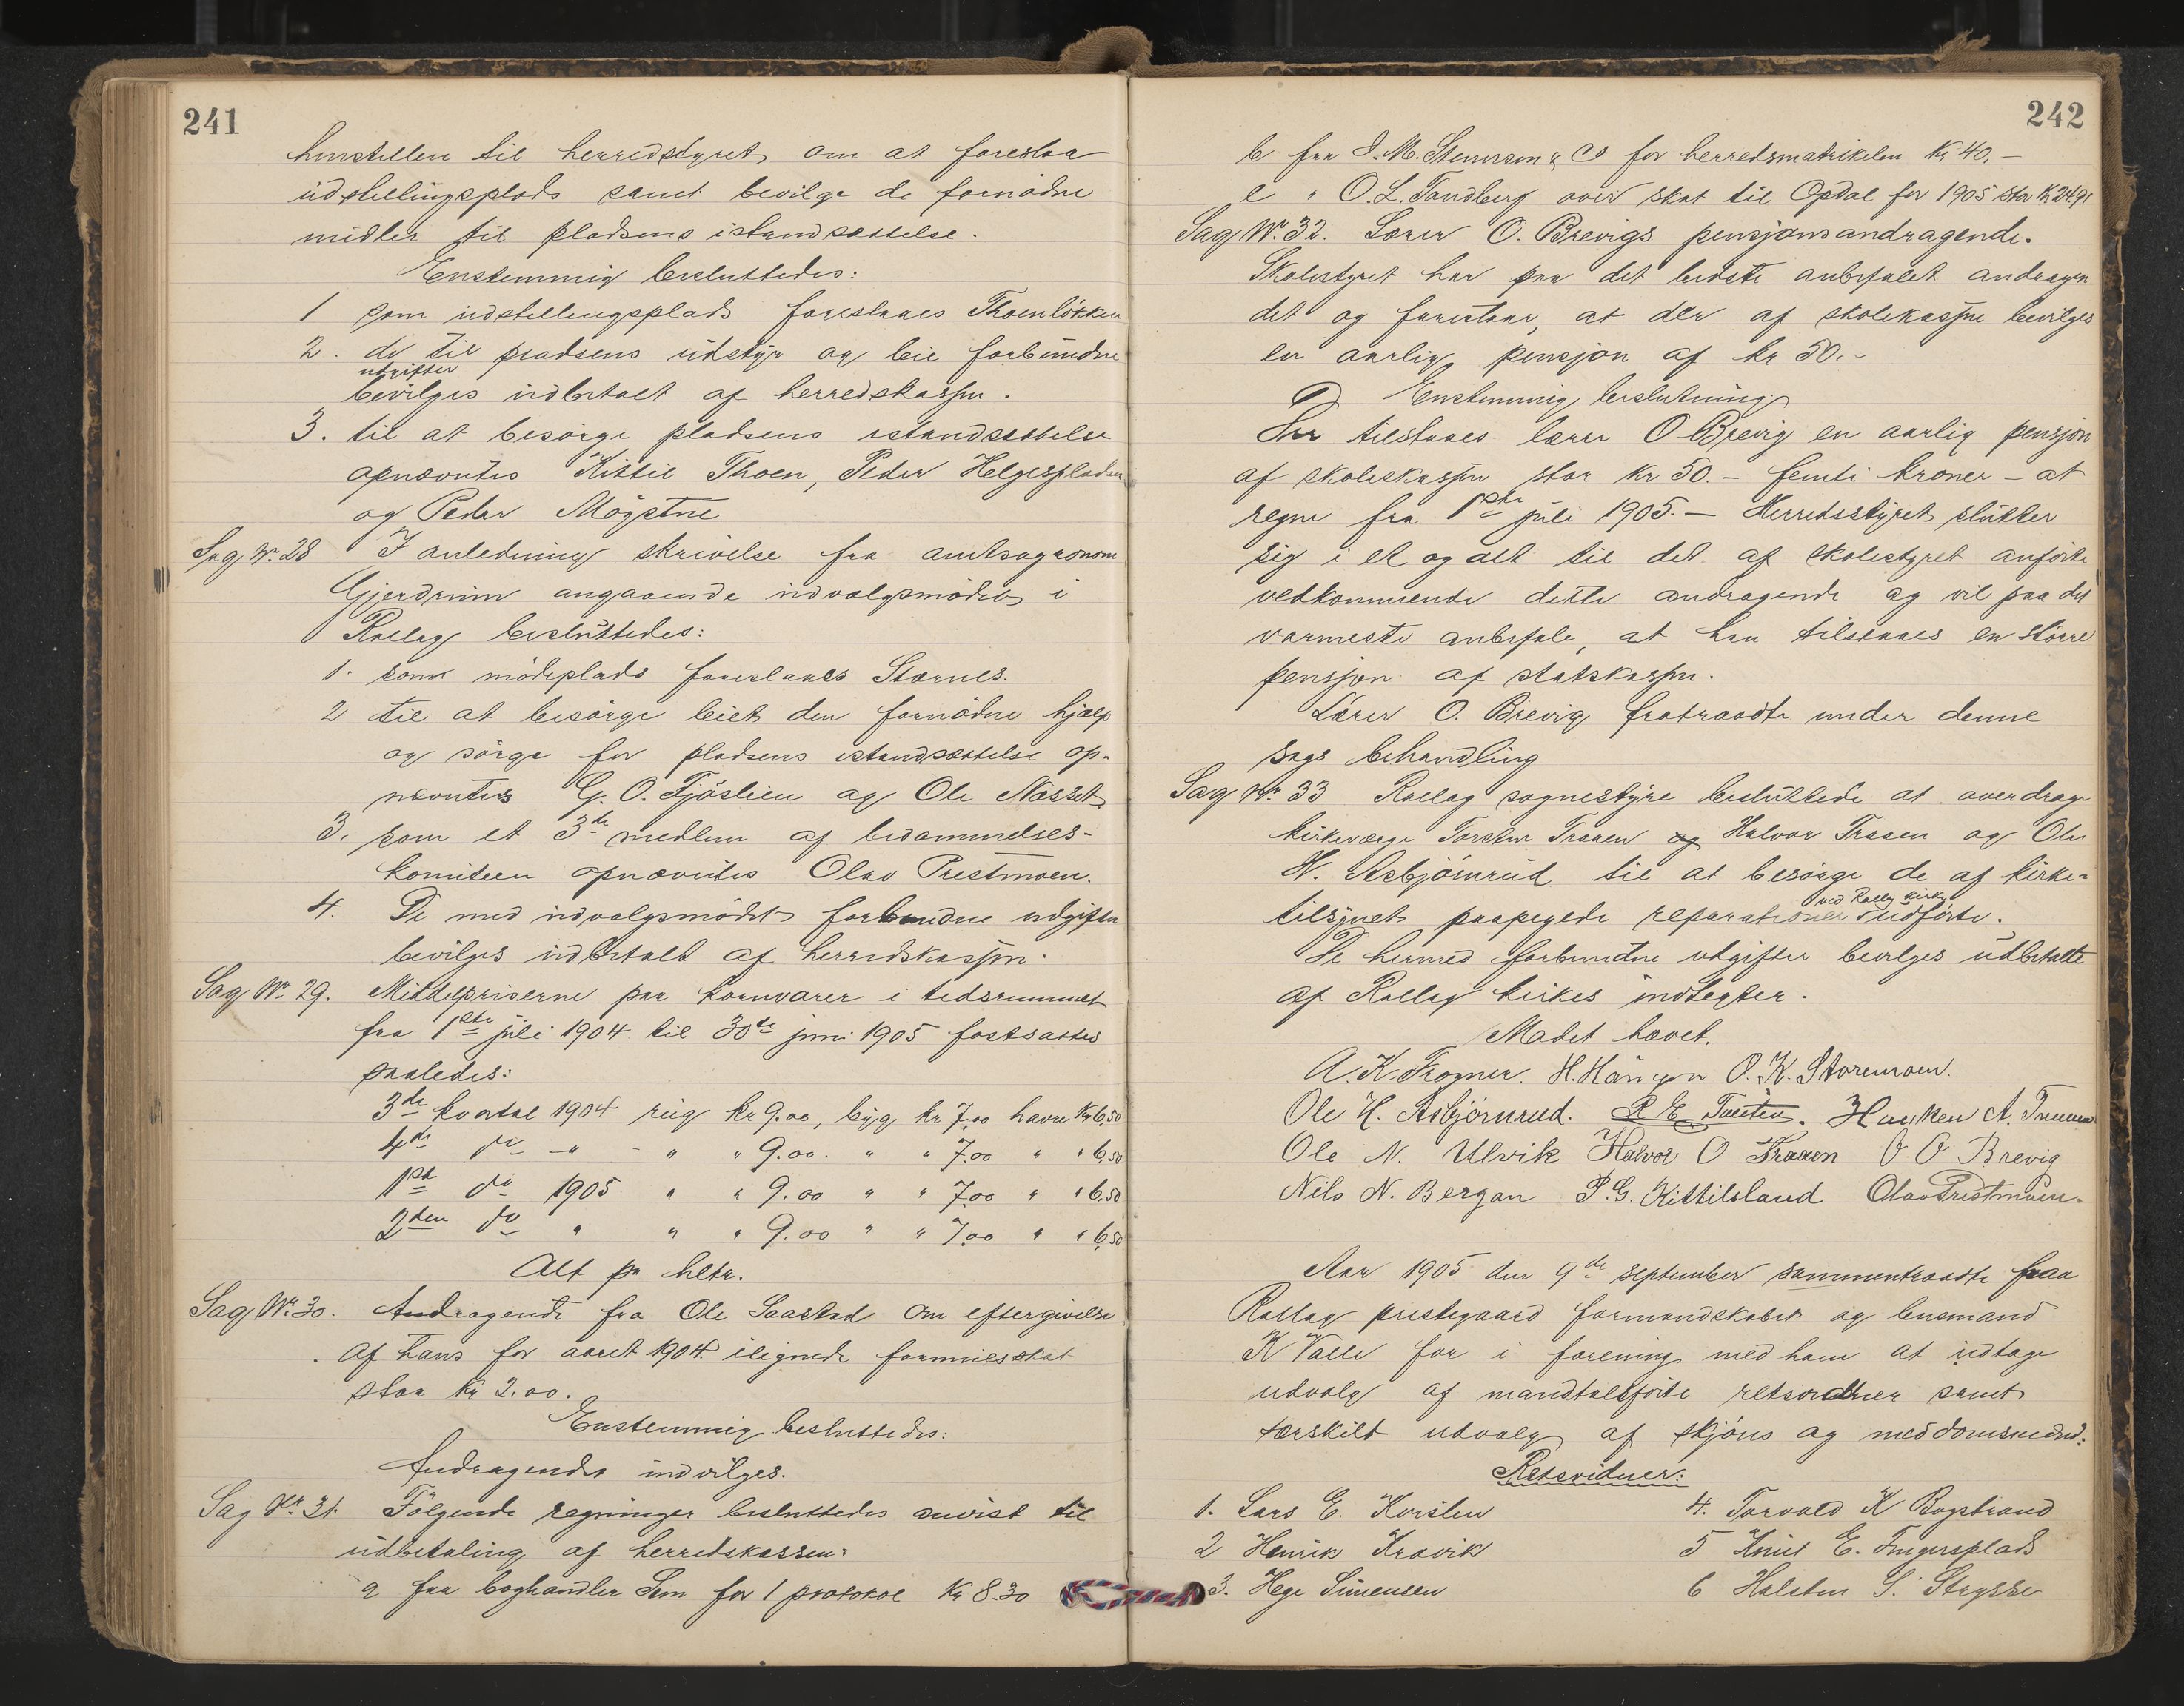 241
henstillen til herredstyret om at foreslaa
udstillingsplads samt bevilge de fornødne
midler til pladsens istandsættelse.
Enstemmig besluttedes:
1 som udstillingsplads foreslaaes Thoenløkken
2. de til pladsens udstyr og leie forbundne
utgifter
bevilges udbetalt af herredskassen.
3. til at besørge pladsens istandsættelse
opnævntes Kittil Thoen, Peder Helgespladsen
og Peder Møgstue
Sag Nr. 28 I anledning skrivelse fra amtsagronom
Gjerdrum angaaende udvalgsmødet i
Rollag besluttedes:
1. som mødeplads foreslaaes Stærnes.
2 til at besørge leiet den fornødne hjælp
og sørge for pladsens istandsættelse op-
nævntes G. O. Fjøslien og Ole Næsset
3. som et 3de medlem af bedømmelses-
komiteen opnævntes Olav Prestmoen.
4. De med udvalgsmødet forbundne udgifter
bevilges udbetalt af herredskassen.
Sag Nr. 29. Middelpriserne paa kornvarer i tidsrummet
fra 1ste juli 1904 til 30te juni 1905 fastsattes
saaledes:
3de kvartal 1904 rug kr 9.00, byg kr 7,00 havre kr 6,50
4de do " " " 9.00 " " 7.00 " " 6,50
1ste do 1905 " " 9.00 " " 7,00 " " 6.50
2den do " " " 9.00 " " 7,00 " " 6,50
Alt pr. hltr.
Sag Nr. 30. Andragende fra Ole Saastad om eftergivelse
af hans for aaret 1904 ilignede formuesskat
stor kr 2.00.
Enstemmig besluttedes:
Andragendet indvilges.
Sag Nr. 31. Følgende regninger besluttedes anvist til
udbetaling af herredskassen:
a fra boghandler Sem for 1 protokol kr 8.30
242
b fra J. M. Stenersen & Co for herredsmatrikelen kr 40.—
c " O. L. Tandberg over skat til Opdal for 1905 stor kr 24.91
Sag Nr. 32. Lærer O. Brevigs pensjonsandragende.
Skolestyret har paa det bedste anbefalet andragen
det og foreslaar, at der af skolekassen bevilges
en aarlig pensjon af kr 50.-
Enstemmig beslutning
Der tilstaaes lærer O Brevig en aarlig pensjon
af skolekassen stor kr 50.— femti kroner — at
regne fra 1ste juli 1905.— Herredsstyret slutter
sig i et og alt til det af skolestyret anførte
vedkommende dette andragende og vil paa det
varmeste anbefale, at han tilstaaes en større
pensjon af statskassen.
Lærer O. Brevig fratraadte under denne
sags behandling
Sag Nr. 33 Rollag sognestyre besluttede at overdrage
kirkeværge Torsten Traaen og Halvor Traaen og Ole
H. Asbjørnrud til at besørge de af kirke-
ved Rollag kirke
tilsynet paapegede reparationer udførte.
De hermed forbundne udgifter bevilges udbetalte
af Rollag kirkes indtægter.
Mødet hævet.
A. K. Frogner. H. O. K. Storemoen.
Ole H. Asbjørnrud. Haaken A.
Ole N. Ulvik Halvor O Traaen O O Brevig
Nils N. Bergan P. G. Kittilsland Olav Prestmoen.
Aar 1905 den 9de september sammentraadte paa
Rollag prestegaard formandskabet og lensmand
K Valle for i forening med ham at udtage
udvalg af mandtalsførte retsvidner samt
særskilt udvalg af skjøns og meddomsmænd:
Retsvidner:
1. Lars E. Korslien
2 Henrik Kravik
3. Hege Simensen
4. Torvald K Bogstrand
5 Knut E. Tingersplads
6 Halsten S.